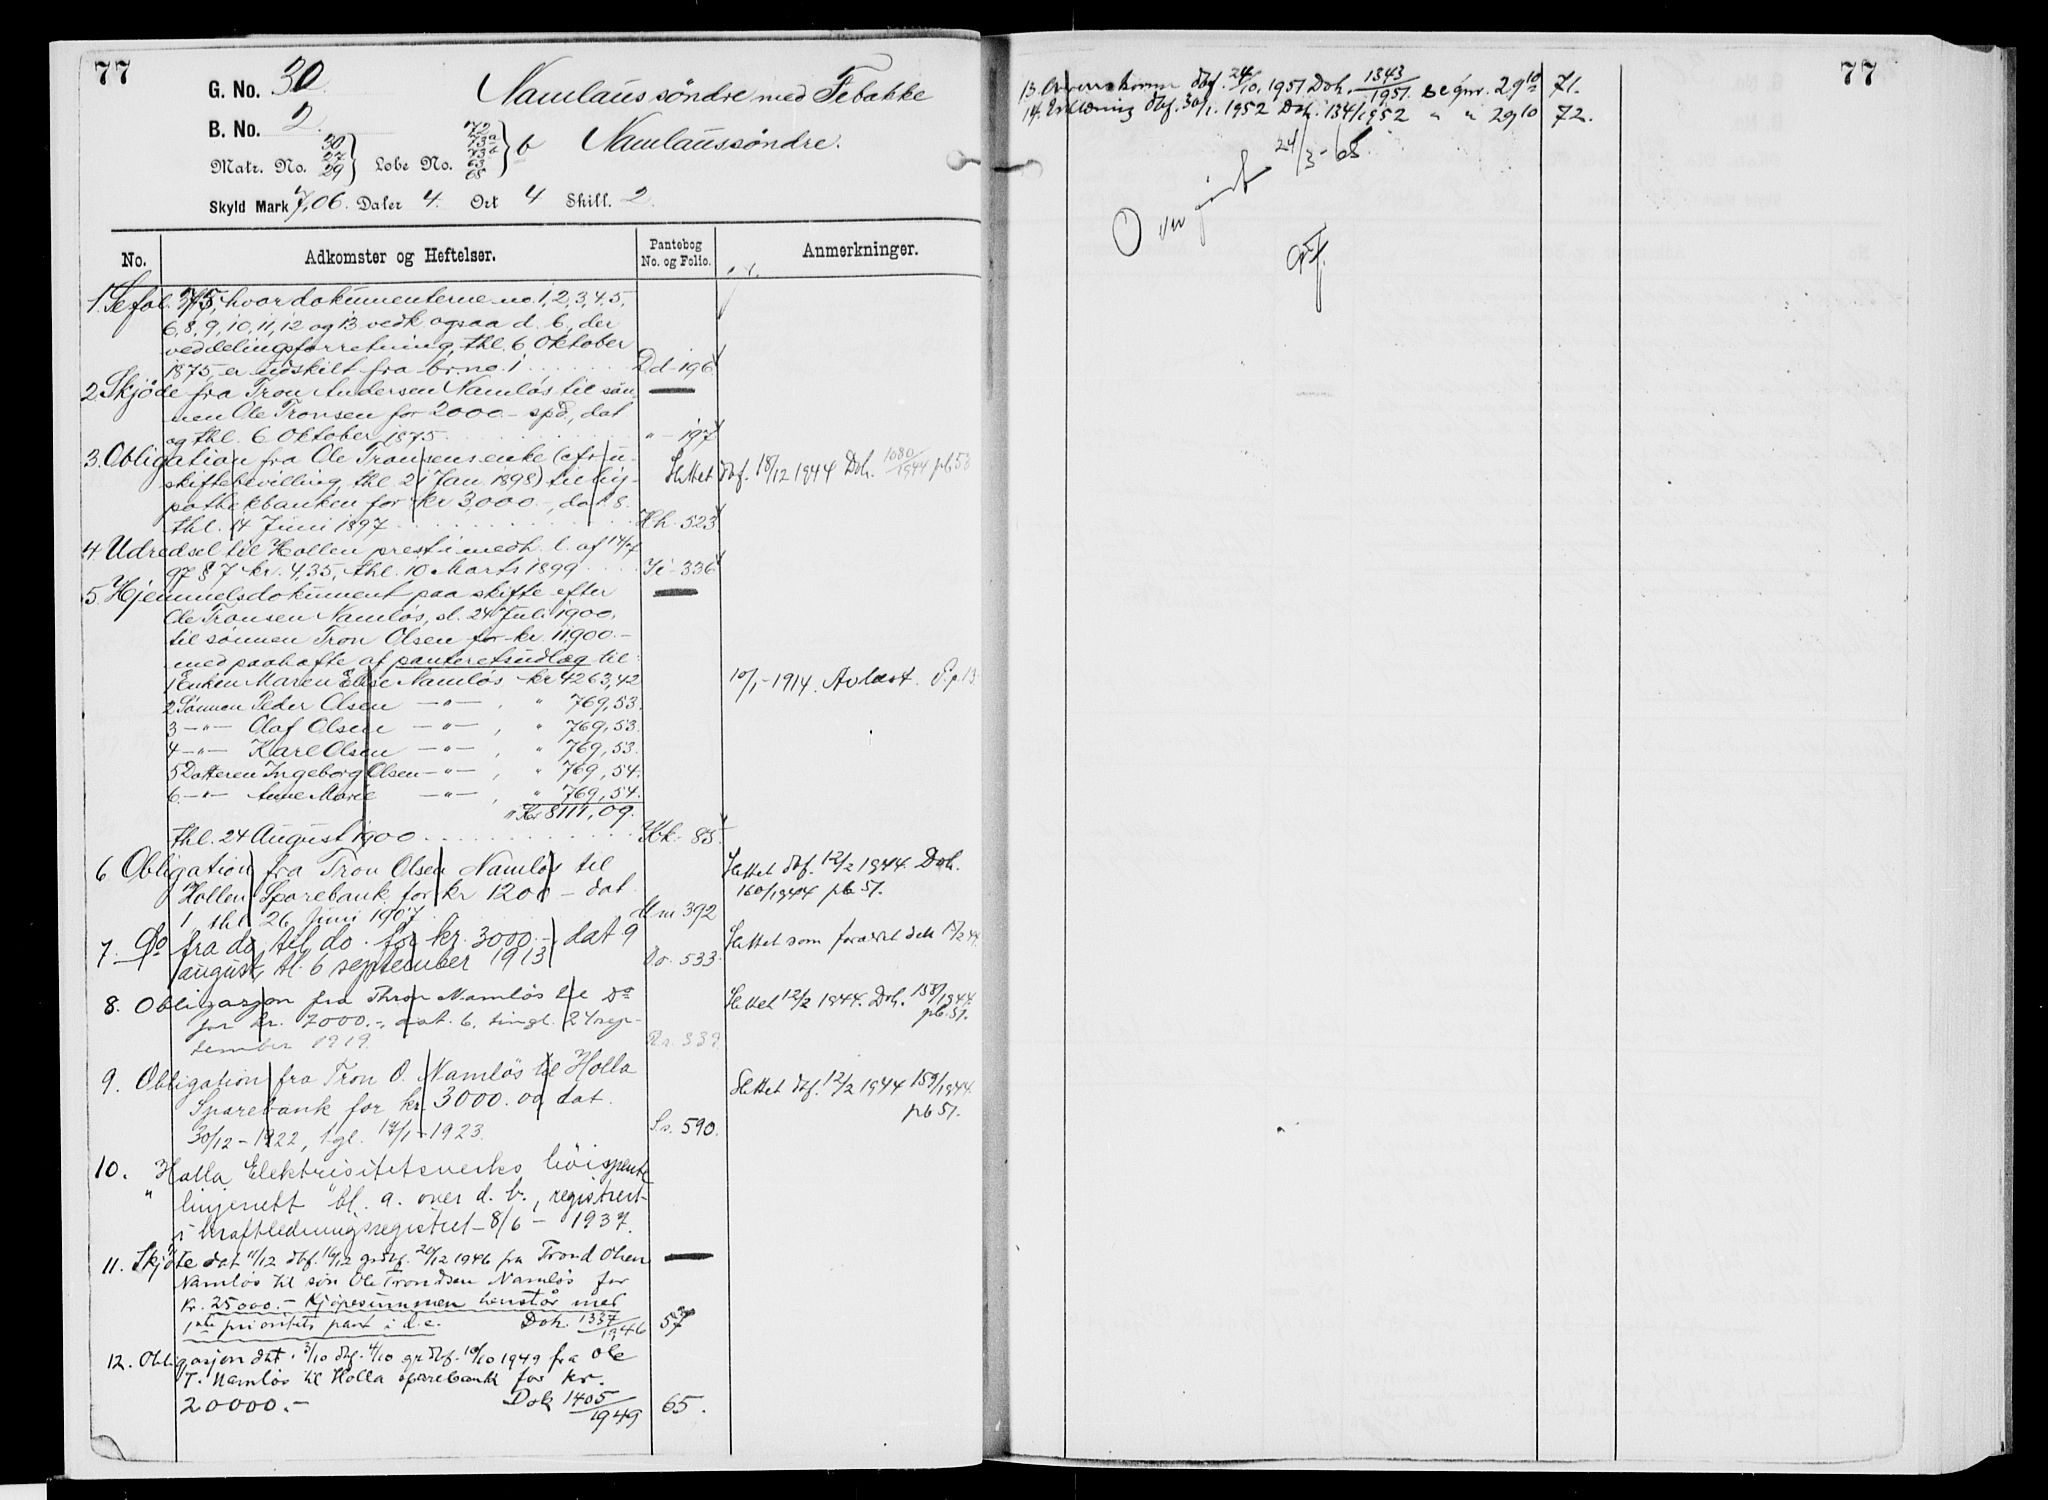 77
G. No. 30.
Namlaus søndre med Febakke
B. No. 2.
Namlaussøndre.
Matr. No. 30 27 29 } Løbe No. 72 73a 73b 63 68 } b
Skyld Mark 7,06. Daler 4. Ort 4 Skill. 2.
No. Adkomster og Heftelser. Pantebog No. og Folio. Anmerkninger.
1. Se fol. 75, hvor dokumenterne no. 1, 2, 3, 4, 5,
6, 8, 9, 10, 11, 12 og 13 vedk. ogsaa d. b., der
ved delingsforretning, thl. 6 Oktober
1875, er udskilt fra br no. 1 Dd-196
2. Skjöde fra Tron Andersen Namløs til søn-
nen Ole Tronsen for 2000.- spd., dat.
og thl. 6 Oktober 1875 " - 197
3. Obligation fra Ole Tronsens enke (cfr. u-
skiftebevilling, thl. 21 Jan. 1898) til hy-
pothekbanken for kr 3,000.-, dat. 8.
thl. 14 Juni 1897 Hh. 523
Slettet dbf. 18/12 1944 Dok. 1080/1944 pb 53
4. Udredsel til Hollen prest i medh. l. af 14/7
97 § 7 kr. 4,35, thl. 10 Marts 1899 Ii-336
5. Hjemmelsdokument paa skifte efter
Ole Tronsen Namløs, sl. 24 Juli 1900,
til sønnen Tron Olsen for kr. 11,900.-
med paahæfte af panteretsudlæg til:
1 Enken Maren Elise Namløs kr 4263,42
10/1-1914. Avlæst. P.p. 13
2 Sønnen Peder Olsen -"-, " 769,53.
3 -"- Olaf Olsen -"-, " 769,53.
4 -"- Karl Olsen -"-, " 769,53.
5 Datteren Ingeborg Olsen -"-, " 769,54.
6 -"- Anne Marie -"-, " 769,54.
" Kr 8111,09.
thl. 24 August 1900 Kk. 85.
6. Obligation fra Tron Olsen Namløs til
Hollen Sparebank for kr 1200 - dat.
1, thl 26, Juni 1907 Mm 392
Slettet dbf. 12/2 1944. Dok.
160/1944 pb 51.
7. Do fra do, til do. for kr. 3000.-, dat 9
august, tl. 6 september 1913 Oo. 533
Slettet som foranst. dok 12/2 44.
8. Obligasjon fra Thron Namløs til Do
for kr. 7000.-, dat. 6, tingl. 24 sep-
tember 1919. Rr. 339
Slettet 12/2 1944. Dok. 158/1944.
pb. 51.
9. Obligation fra Tron O. Namløs til Holla
Sparebank for kr. 3000.00 dat.
30/12-1922, tgl. 17/1-1923. Ss. 590.
Slettet dbf. 12/2 1944 159/1944.
pb 51.
10. "Holla Elektrisitetsverks höispente
linjenett" bl. a. over d. b., registrert
i kraftledningsregistret - 8/6 - 1937.
11. Skjöte dat 11/12 dbf. 16/12 grdbf. 20/12 1946 fra Trond Olsen
Namløs til søn Ole Trondsen Namløs for
kr. 25000.- Kjöpesummen henstår med
1ste prioritets pant i d.e. Dok. 1337/1946 57
12. Obligasjon dat. 3/10 dbf. 4/10 grdbf. 10/10 1949 fra Ole
T. Namløs til Holla sparebank for kr.
20000.- Dok 1405/1949 65.
77
13. Overenskomst dbf. 24/10. 1951 Dok. 1343/1951. se gnr. 29 10 71.
14. Erklæring dbf. 30/1. 1952 Dok. 134/1952 " " 29 10 72.
Overført 24/3-68